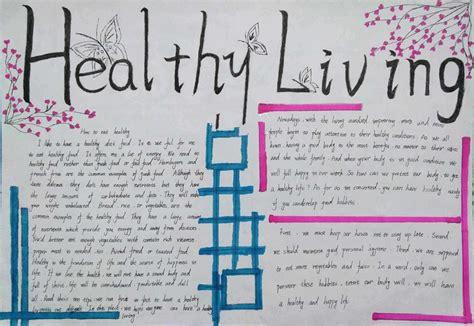 Healthy Living
How to eat healthy
I like to have a healthy diet food. It is useful for me
to eat healthy food. It offers me a lot of energy. We need to
healthy food rather than junk food or fast food. Hamburgers and
french fries are the common examples of junk food. Although they
taste delicious they don't have enough nutrients but they have
a large amount of carbohydrate and fats. They will make
your weight unbalanced. Bread, rice or vegetables are the
common examples of the healthy food. They have a large amount
of nutrients which provide you energy and away from diseases
You'd better eat enough vegetables with contain rich vitamins
proper meat is needed too. Avoid fried or roasted food.
Healthy is the foundation of life and the source of happiness in
life. If we lose the health we will not have a sound body and
full of shine, life will be unendurable
healthy
living
Nowadays with the living standard improving more and more
people begin to pay attention to their healthy conditions. As we all
known, having a good body to the most benefits no matter to their own
and the whole family. And when your body is in good condition we
will full happy to our work. So how can we protect our body to get
a healthy life? As far as I'm concerned, you can have healthy easily
if you can develop good habbits.
First, we must keep our hours not to stay up late. Second
we should maintain good personal hygiene. Third, we are supposed
to eat more vegetables and fruits. In a word, only can we
persever these habbits, extent our body will, we will have
a healthy and happy life.